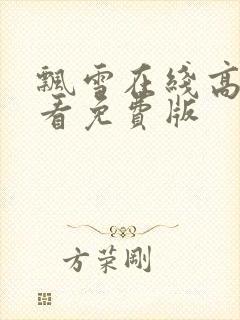 飘雪在线高
看免费版
方荣刚